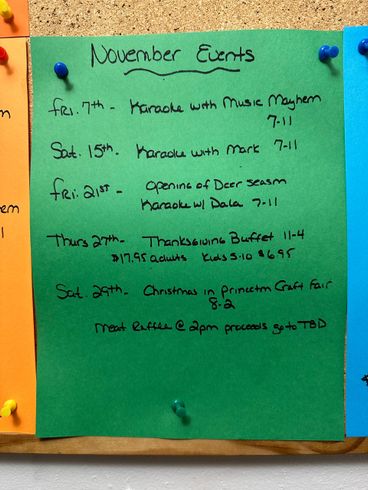 November Events
Fri. 7th - Karaoke with Music Mayhem
7-11
Sat. 15th. - Karaoke with Mark 7-11
Fri. 21st - Opening of Deer season
Karaoke w/ Dala 7-11
Thurs 27th - Thanksgiving Buffet 11-4
$17.95 adults Kids 5-10 $6.95
Sat. 29th - Christmas in Princeton Craft Fair
8-2
Meat Raffle @ 2pm proceeds go to TBD